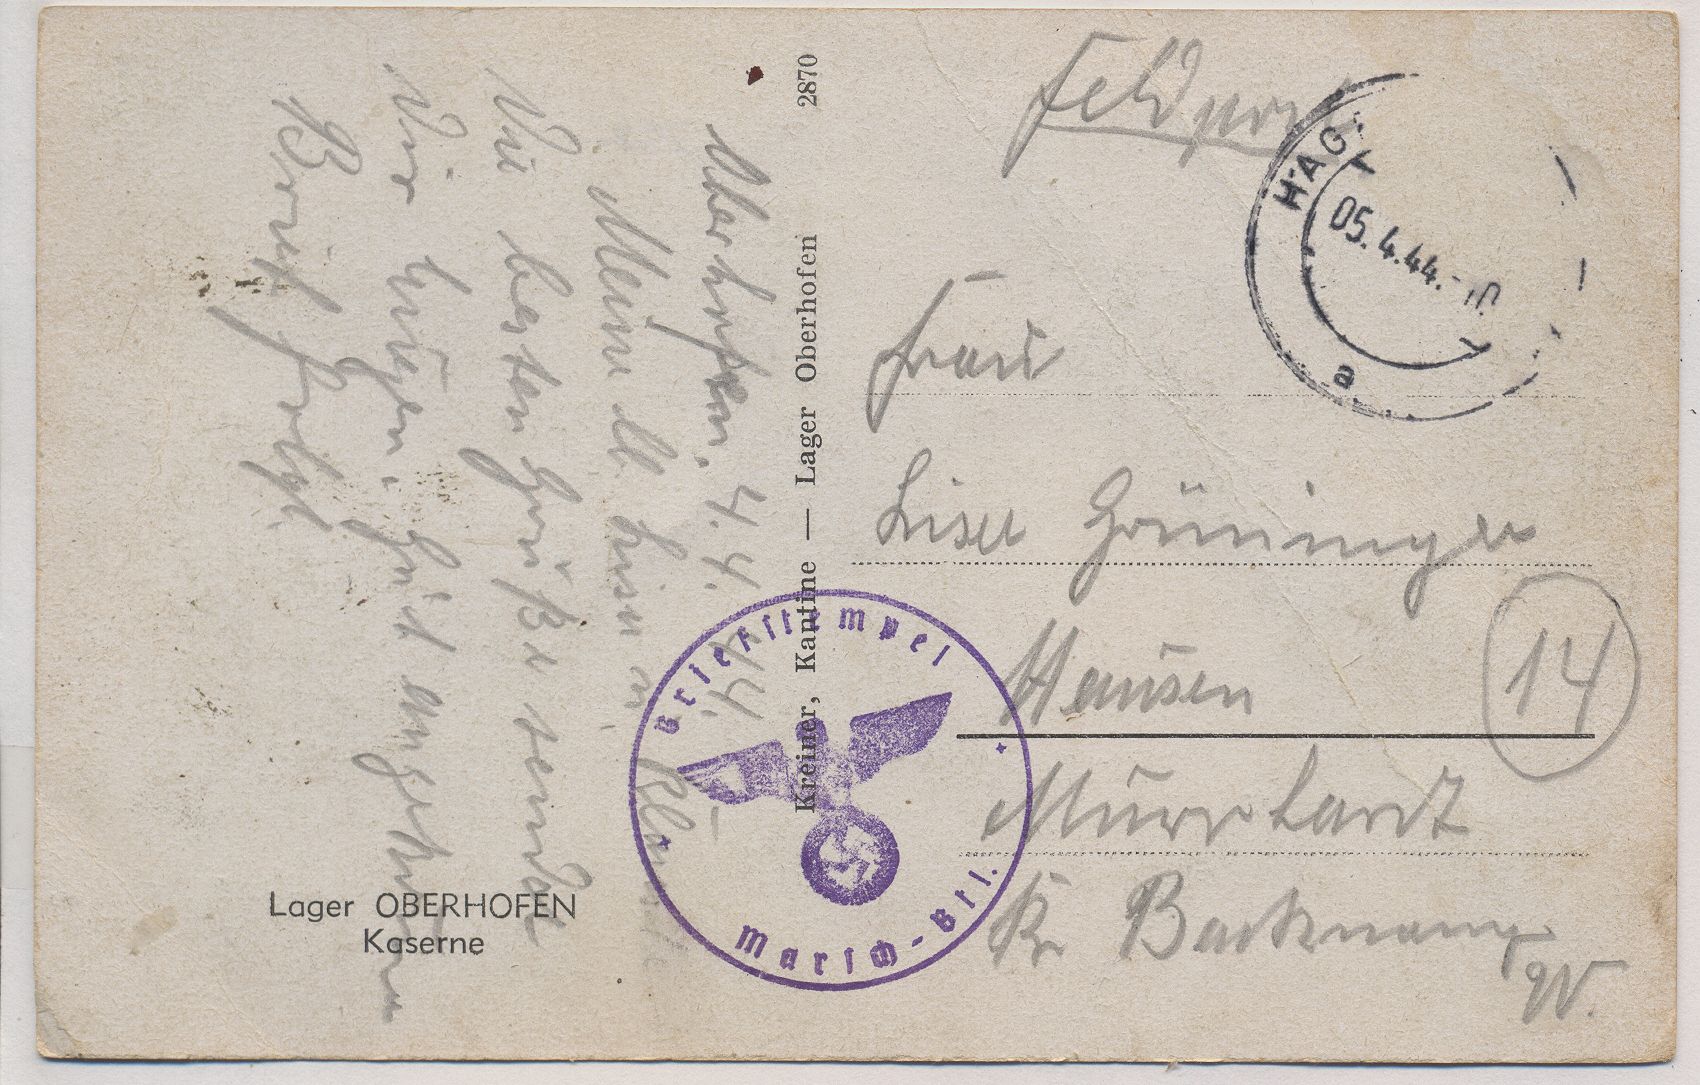 Feldpost
HAG
05.4.44.
a
Frau
Liesel Grüninger
Hausen
14
Murrhardt
Kr Backnang
W.
2870
Kreiner, Kantine — Lager Oberhofen
Briefstempel
Marsch-Btl.
Oberhofen, 4.4.44.
Meine l.
Die besten Grüße sendet
Dir Eugen. Gut angekommen
Brief folgt.
Lager OBERHOFEN
Kaserne